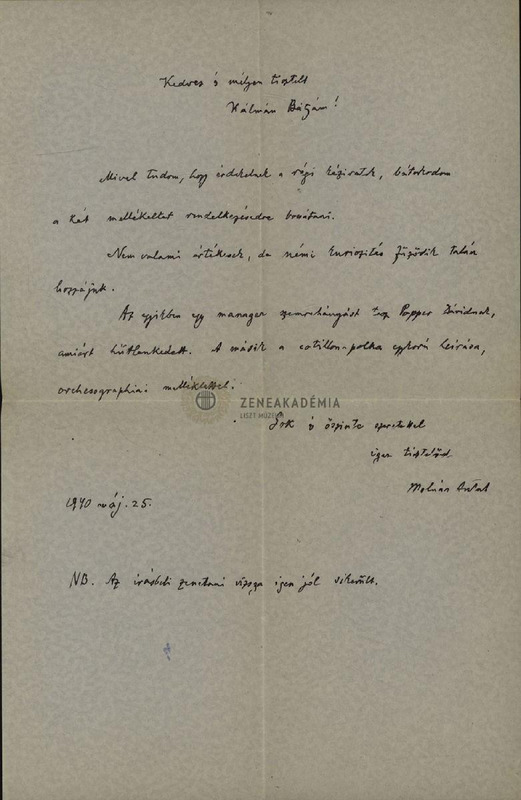 Kedves és mélyen tisztelt
Kálmán Bátyám!
Mivel tudom, hogy érdekelnek a régi kéziratok, bátorkodom
a két mellékeltet rendelkezésedre bocsátani.
Nem valami értékesek, de némi kuriozitás fűződik talán
hozzájuk.
Az egyikben egy manager szemrehányást tesz Popper Dávidnak,
amiért hűtlenkedett. A másik a cotillon-polka egykorú leírása,
orchesographiai melléklettel.
ZENEAKADÉMIA
LISZT MÚZEUM
Sok és őszinte szeretettel
igaz tisztelőd
Molnár Antal
1940 máj. 25.
NB. Az írásbeli zenetani vizsga igen jól sikerült.